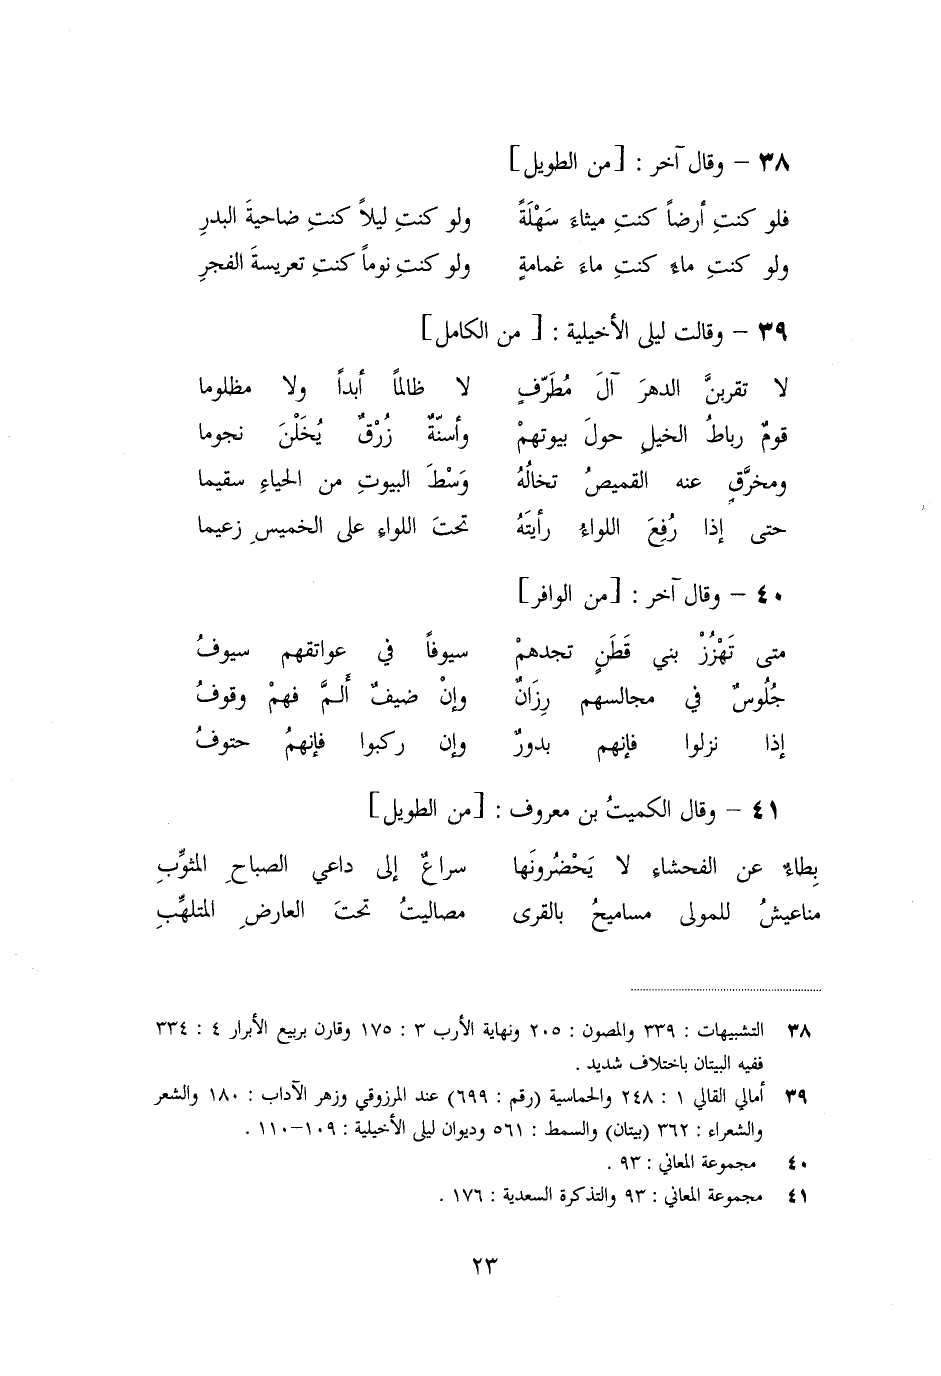 ٣٨ – وقال آخر : [من الطويل]
فلو كنتِ أرضاً كنتِ ميثاءَ سَهْلَةً ولو كنتِ ليلاً كنتِ ضاحيةَ البدرِ
ولو كنتِ ماءً كنتِ ماءَ غمامةٍ ولو كنتِ نوماً كنتِ تعريسةَ الفجرِ
٣٩ – وقالت ليلى الأخيلية : [ من الكامل]
لا تقربنَّ الدهرَ آلَ مُطَرّفٍ لا ظالماً أبداً ولا مظلوما
قومٌ رباطُ الخيلِ حولَ بيوتهمْ وأسنّةٌ زُرْقٌ يُخَلْنَ نجوما
ومخرَّقٍ عنه القميصُ تخالُهُ وَسْطَ البيوتِ من الحياءِ سقيما
حتى إذا رُفِعَ اللواءُ رأيتَهُ تحتَ اللواءِ على الخميسِ زعيما
٤٠ – وقال آخر : [من الوافر]
متى تَهْزُزْ بني قَطَنٍ تجدهمْ سيوفاً في عواتقهم سيوفُ
جُلُوسٌ في مجالسهم رِزَانٌ وإنْ ضيفٌ أَلمَّ فهمْ وقوفُ
إذا نزلوا فإنهم بدورٌ وإن ركبوا فإنهمُ حتوفُ
٤١ – وقال الكميتُ بن معروف : [من الطويل]
بِطاءٌ عن الفحشاءِ لا يَحْضُرونَها سراعٌ إلى داعي الصباحِ المثوِّبِ
مناعيشُ للمولى مساميحُ بالقرى مصاليتُ تحتَ العارضِ المتلهِّبِ
٣٨ التشبيهات : ٣٣٩ والمصون : ٢٠٥ ونهاية الأرب ٣ : ١٧٥ وقارن بربيع الأبرار ٤ : ٣٣٤
ففيه البيتان باختلاف شديد .
٣٩ أمالي القالي ١ : ٢٤٨ والحماسية (رقم : ٦٩٩) عند المرزوقي وزهر الآداب : ١٨٠ والشعر
والشعراء : ٣٦٢ (بيتان) والسمط : ٥٦١ وديوان ليلى الأخيلية : ١٠٩–١١٠ .
٤٠ مجموعة المعاني : ٩٣ .
٤١ مجموعة المعاني : ٩٣ والتذكرة السعدية : ١٧٦ .
٢٣